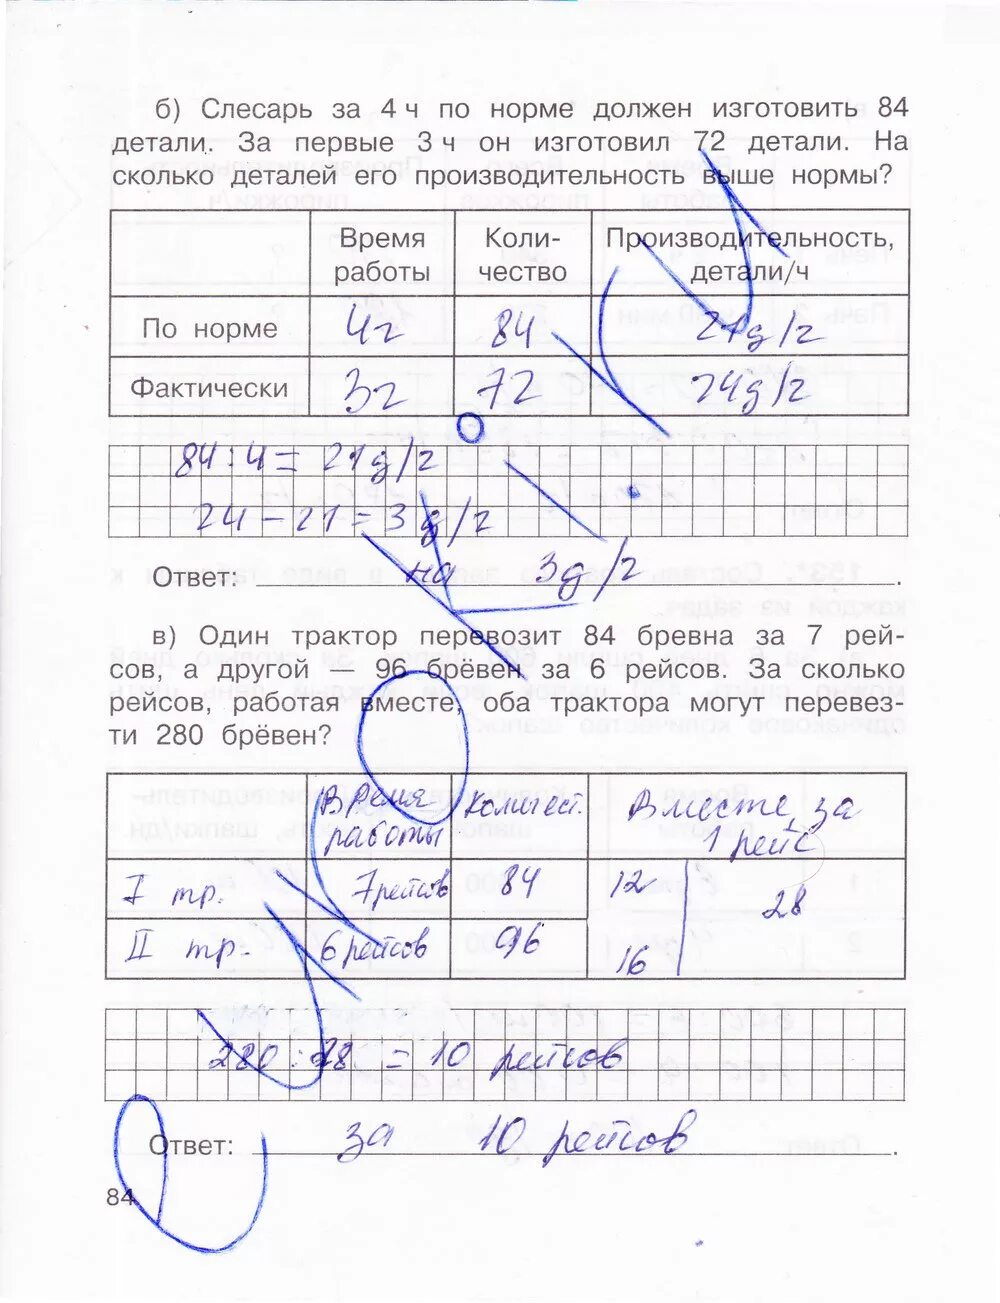 б) Слесарь за 4 ч по норме должен изготовить 84
детали. За первые 3 ч он изготовил 72 детали. На
сколько деталей его производительность выше нормы?
Время работы Коли- чество Производительность, детали/ч
По норме 4г 84 21д/г
Фактически 3г 72 24д/г
84 : 4 = 21д/г
24 – 21 = 3 д/г
Ответ: на 3д/г.
в) Один трактор перевозит 84 бревна за 7 рей-
сов, а другой — 96 брёвен за 6 рейсов. За сколько
рейсов, работая вместе, оба трактора могут перевез-
ти 280 брёвен?
Время работы Количест. Вместе за 1 рейс
I тр. 7рейсов 84 12 28
II тр. 6рейсов 96 16
280 : 28 = 10 рейсов
Ответ: за 10 рейсов.
84